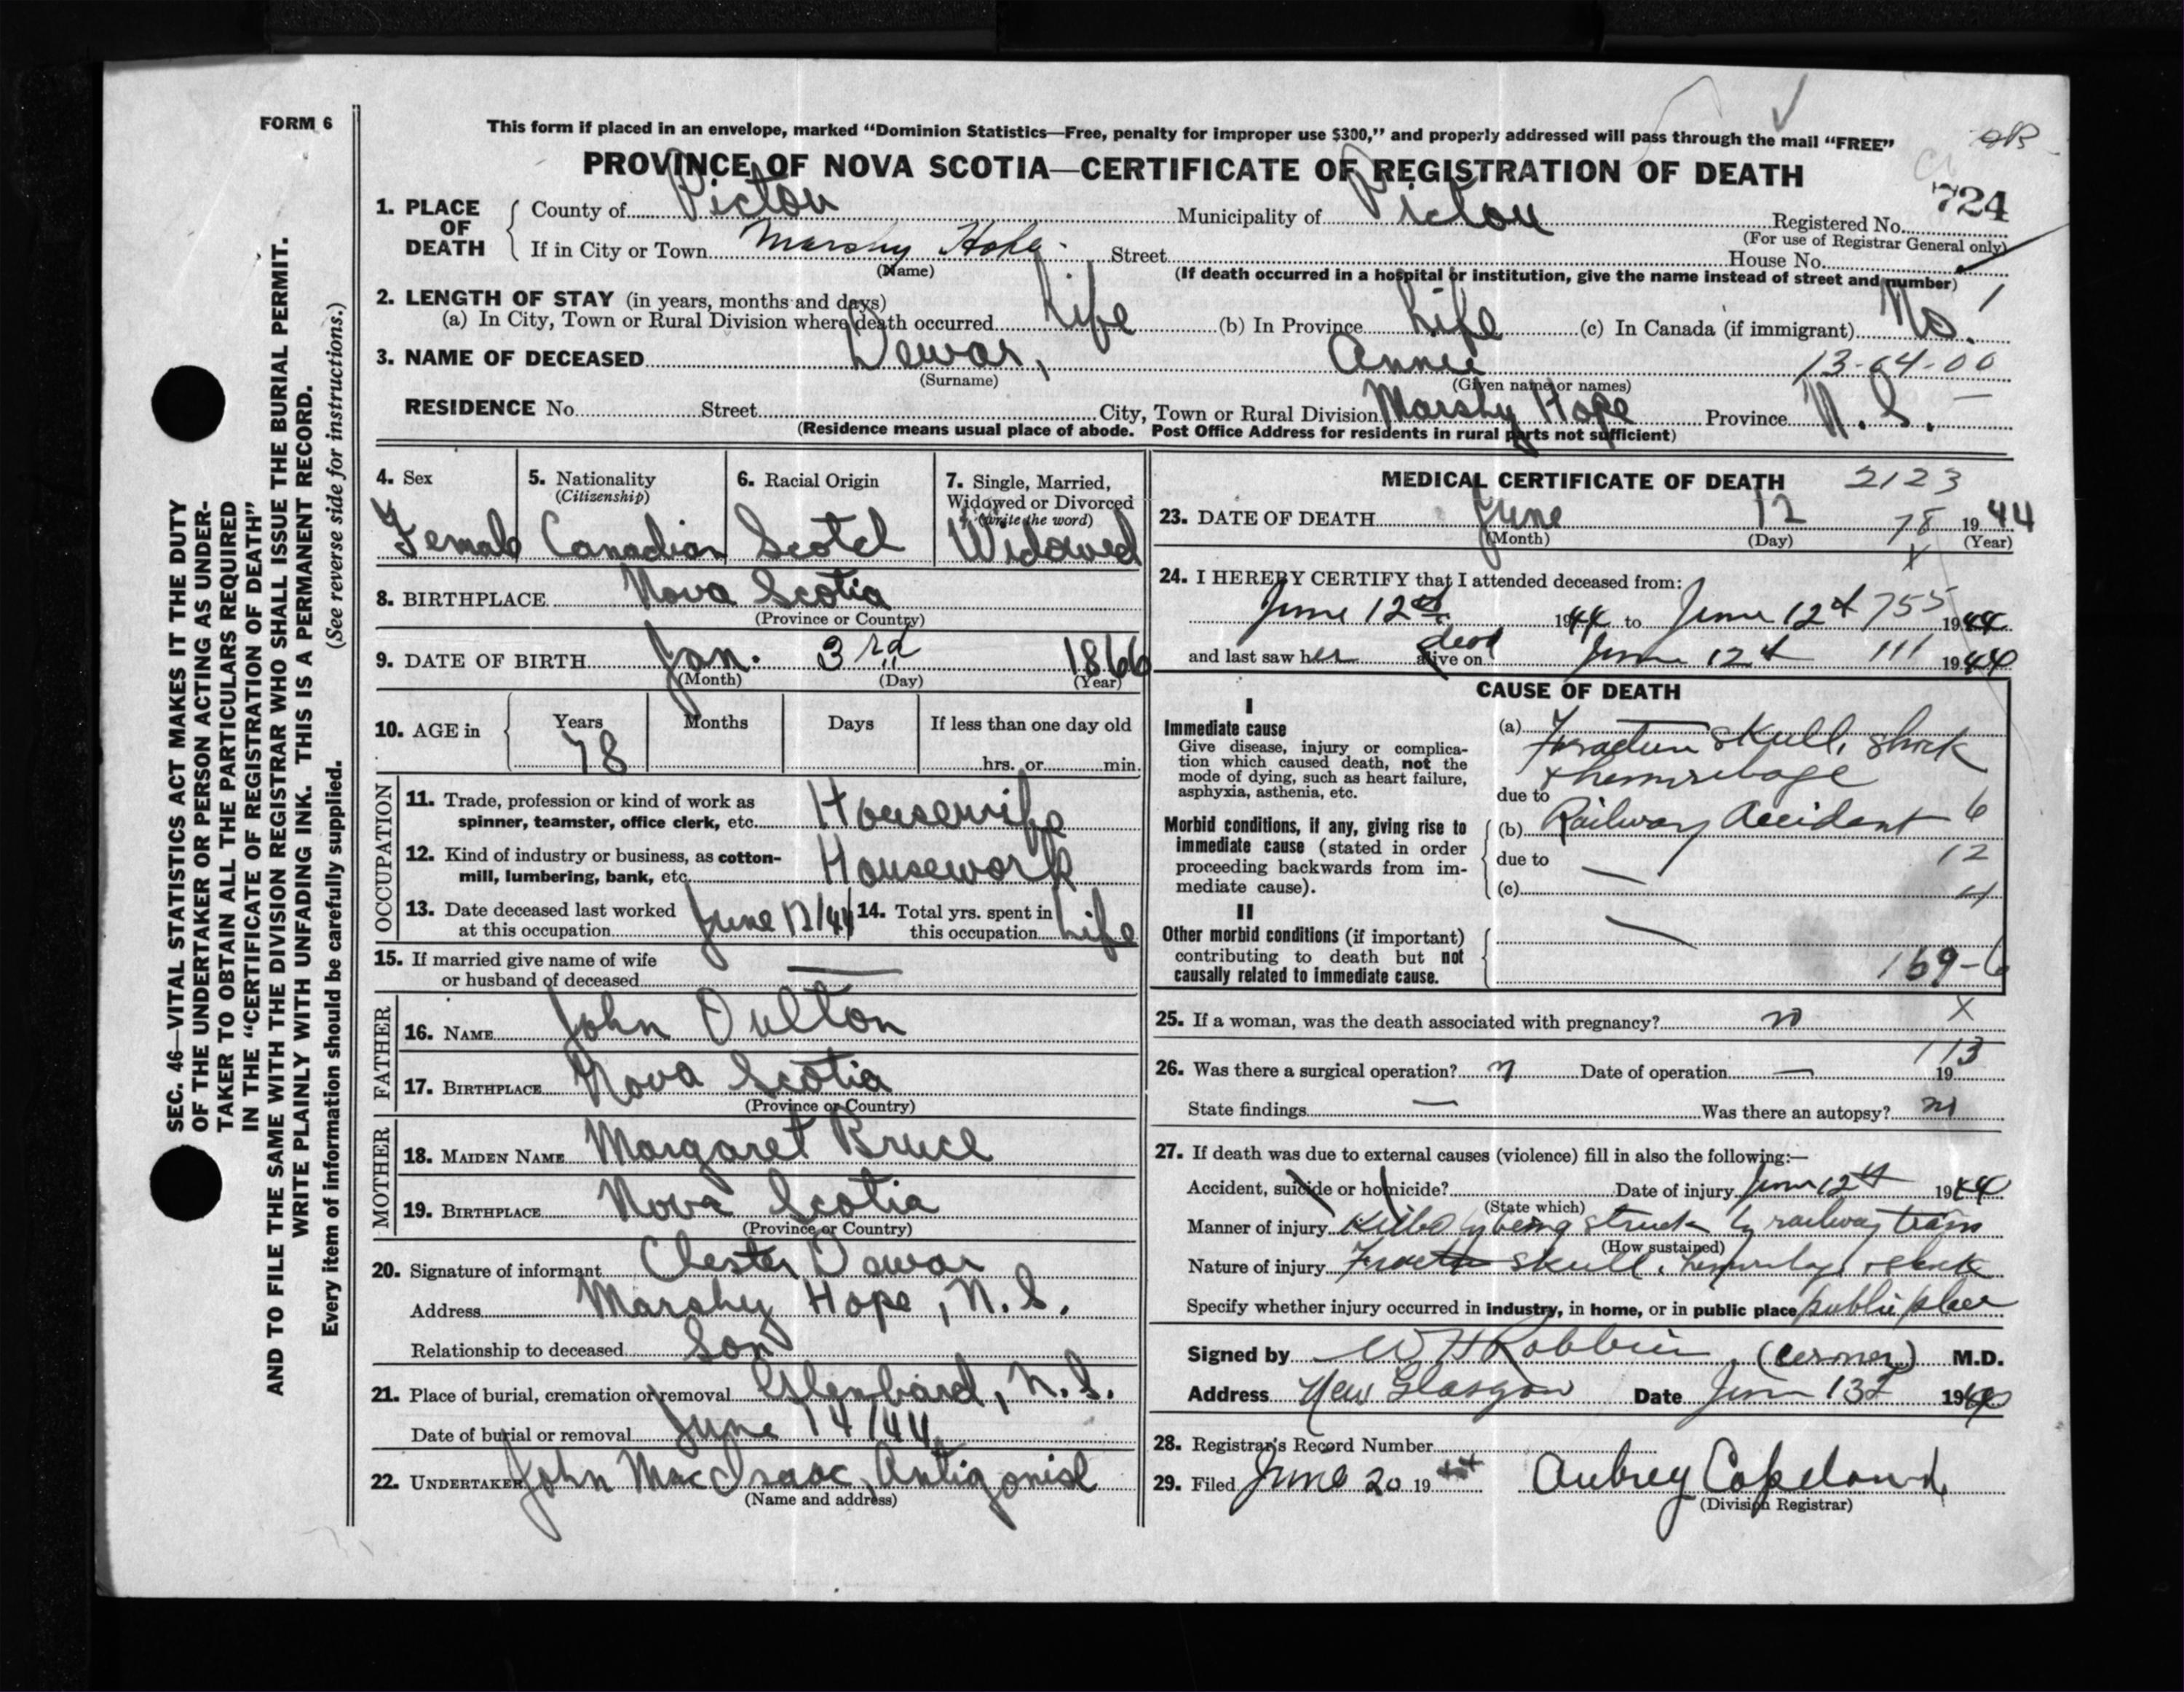 FORM 6
This form if placed in an envelope, marked "Dominion Statistics—Free, penalty for improper use $300," and properly addressed will pass through the mail "FREE"
PROVINCE OF NOVA SCOTIA—CERTIFICATE OF REGISTRATION OF DEATH
724
1. PLACE OF DEATH County of Pictou Municipality of Pictou Registered No.
(For use of Registrar General only)
If in City or Town Marshy Hope Street House No.
(Name) (If death occurred in a hospital or institution, give the name instead of street and number)
2. LENGTH OF STAY (in years, months and days)
(a) In City, Town or Rural Division where death occurred Life (b) In Province Life (c) In Canada (if immigrant) No.
3. NAME OF DECEASED Dewar, Annie 13-64-00
(Surname) (Given name or names)
RESIDENCE No. Street City, Town or Rural Division Marshy Hope Province N. S.
(Residence means usual place of abode. Post Office Address for residents in rural parts not sufficient)
4. Sex Female
5. Nationality (Citizenship) Canadian
6. Racial Origin Scotch
7. Single, Married, Widowed or Divorced (write the word) Widowed
8. BIRTHPLACE Nova Scotia
(Province or Country)
9. DATE OF BIRTH Jan. 3rd 1866
(Month) (Day) (Year)
10. AGE in Years Months Days If less than one day old
78 hrs. or min.
OCCUPATION
11. Trade, profession or kind of work as spinner, teamster, office clerk, etc. Housewife
12. Kind of industry or business, as cotton-mill, lumbering, bank, etc. Housework
13. Date deceased last worked at this occupation June 12/44 14. Total yrs. spent in this occupation Life
15. If married give name of wife or husband of deceased —
FATHER
16. NAME John Oulton
17. BIRTHPLACE Nova Scotia
(Province or Country)
MOTHER
18. MAIDEN NAME Margaret Bruce
19. BIRTHPLACE Nova Scotia
(Province or Country)
20. Signature of informant Chester Dewar
Address Marshy Hope, N.S.
Relationship to deceased Son
21. Place of burial, cremation or removal Glenbard, N.S.
Date of burial or removal June 14/44
22. UNDERTAKER John MacIsaac, Antigonish
(Name and address)
MEDICAL CERTIFICATE OF DEATH 2123
23. DATE OF DEATH June 12 78 1944
(Month) (Day) (Year)
24. I HEREBY CERTIFY that I attended deceased from:
June 12th 1944 to June 12th 755 1944
and last saw her alive dead on June 12th 111 1944
CAUSE OF DEATH
I
Immediate cause
Give disease, injury or complication which caused death, not the mode of dying, such as heart failure, asphyxia, asthenia, etc.
(a) Fracture skull, shock
+ hemorrhage
due to
Morbid conditions, if any, giving rise to immediate cause (stated in order proceeding backwards from immediate cause).
(b) Railway Accident 6
due to — 12
(c)
II
Other morbid conditions (if important) contributing to death but not causally related to immediate cause.
—
169-6
25. If a woman, was the death associated with pregnancy? no X
113
26. Was there a surgical operation? n Date of operation — 19
State findings — Was there an autopsy? no
27. If death was due to external causes (violence) fill in also the following:—
Accident, suicide or homicide? Date of injury June 12th 1944
(State which)
Manner of injury Killed by being struck by railway train
(How sustained)
Nature of injury Fracture skull, hemorrhage + shock
Specify whether injury occurred in industry, in home, or in public place public place
Signed by W H Robbins (Coroner) M.D.
Address New Glasgow Date June 13th 1944
28. Registrar's Record Number
29. Filed June 20 1944 Aubrey Copeland
(Division Registrar)
SEC. 46—VITAL STATISTICS ACT MAKES IT THE DUTY
OF THE UNDERTAKER OR PERSON ACTING AS UNDER-
TAKER TO OBTAIN ALL THE PARTICULARS REQUIRED
IN THE "CERTIFICATE OF REGISTRATION OF DEATH"
AND TO FILE THE SAME WITH THE DIVISION REGISTRAR WHO SHALL ISSUE THE BURIAL PERMIT.
WRITE PLAINLY WITH UNFADING INK. THIS IS A PERMANENT RECORD.
Every item of information should be carefully supplied. (See reverse side for instructions.)